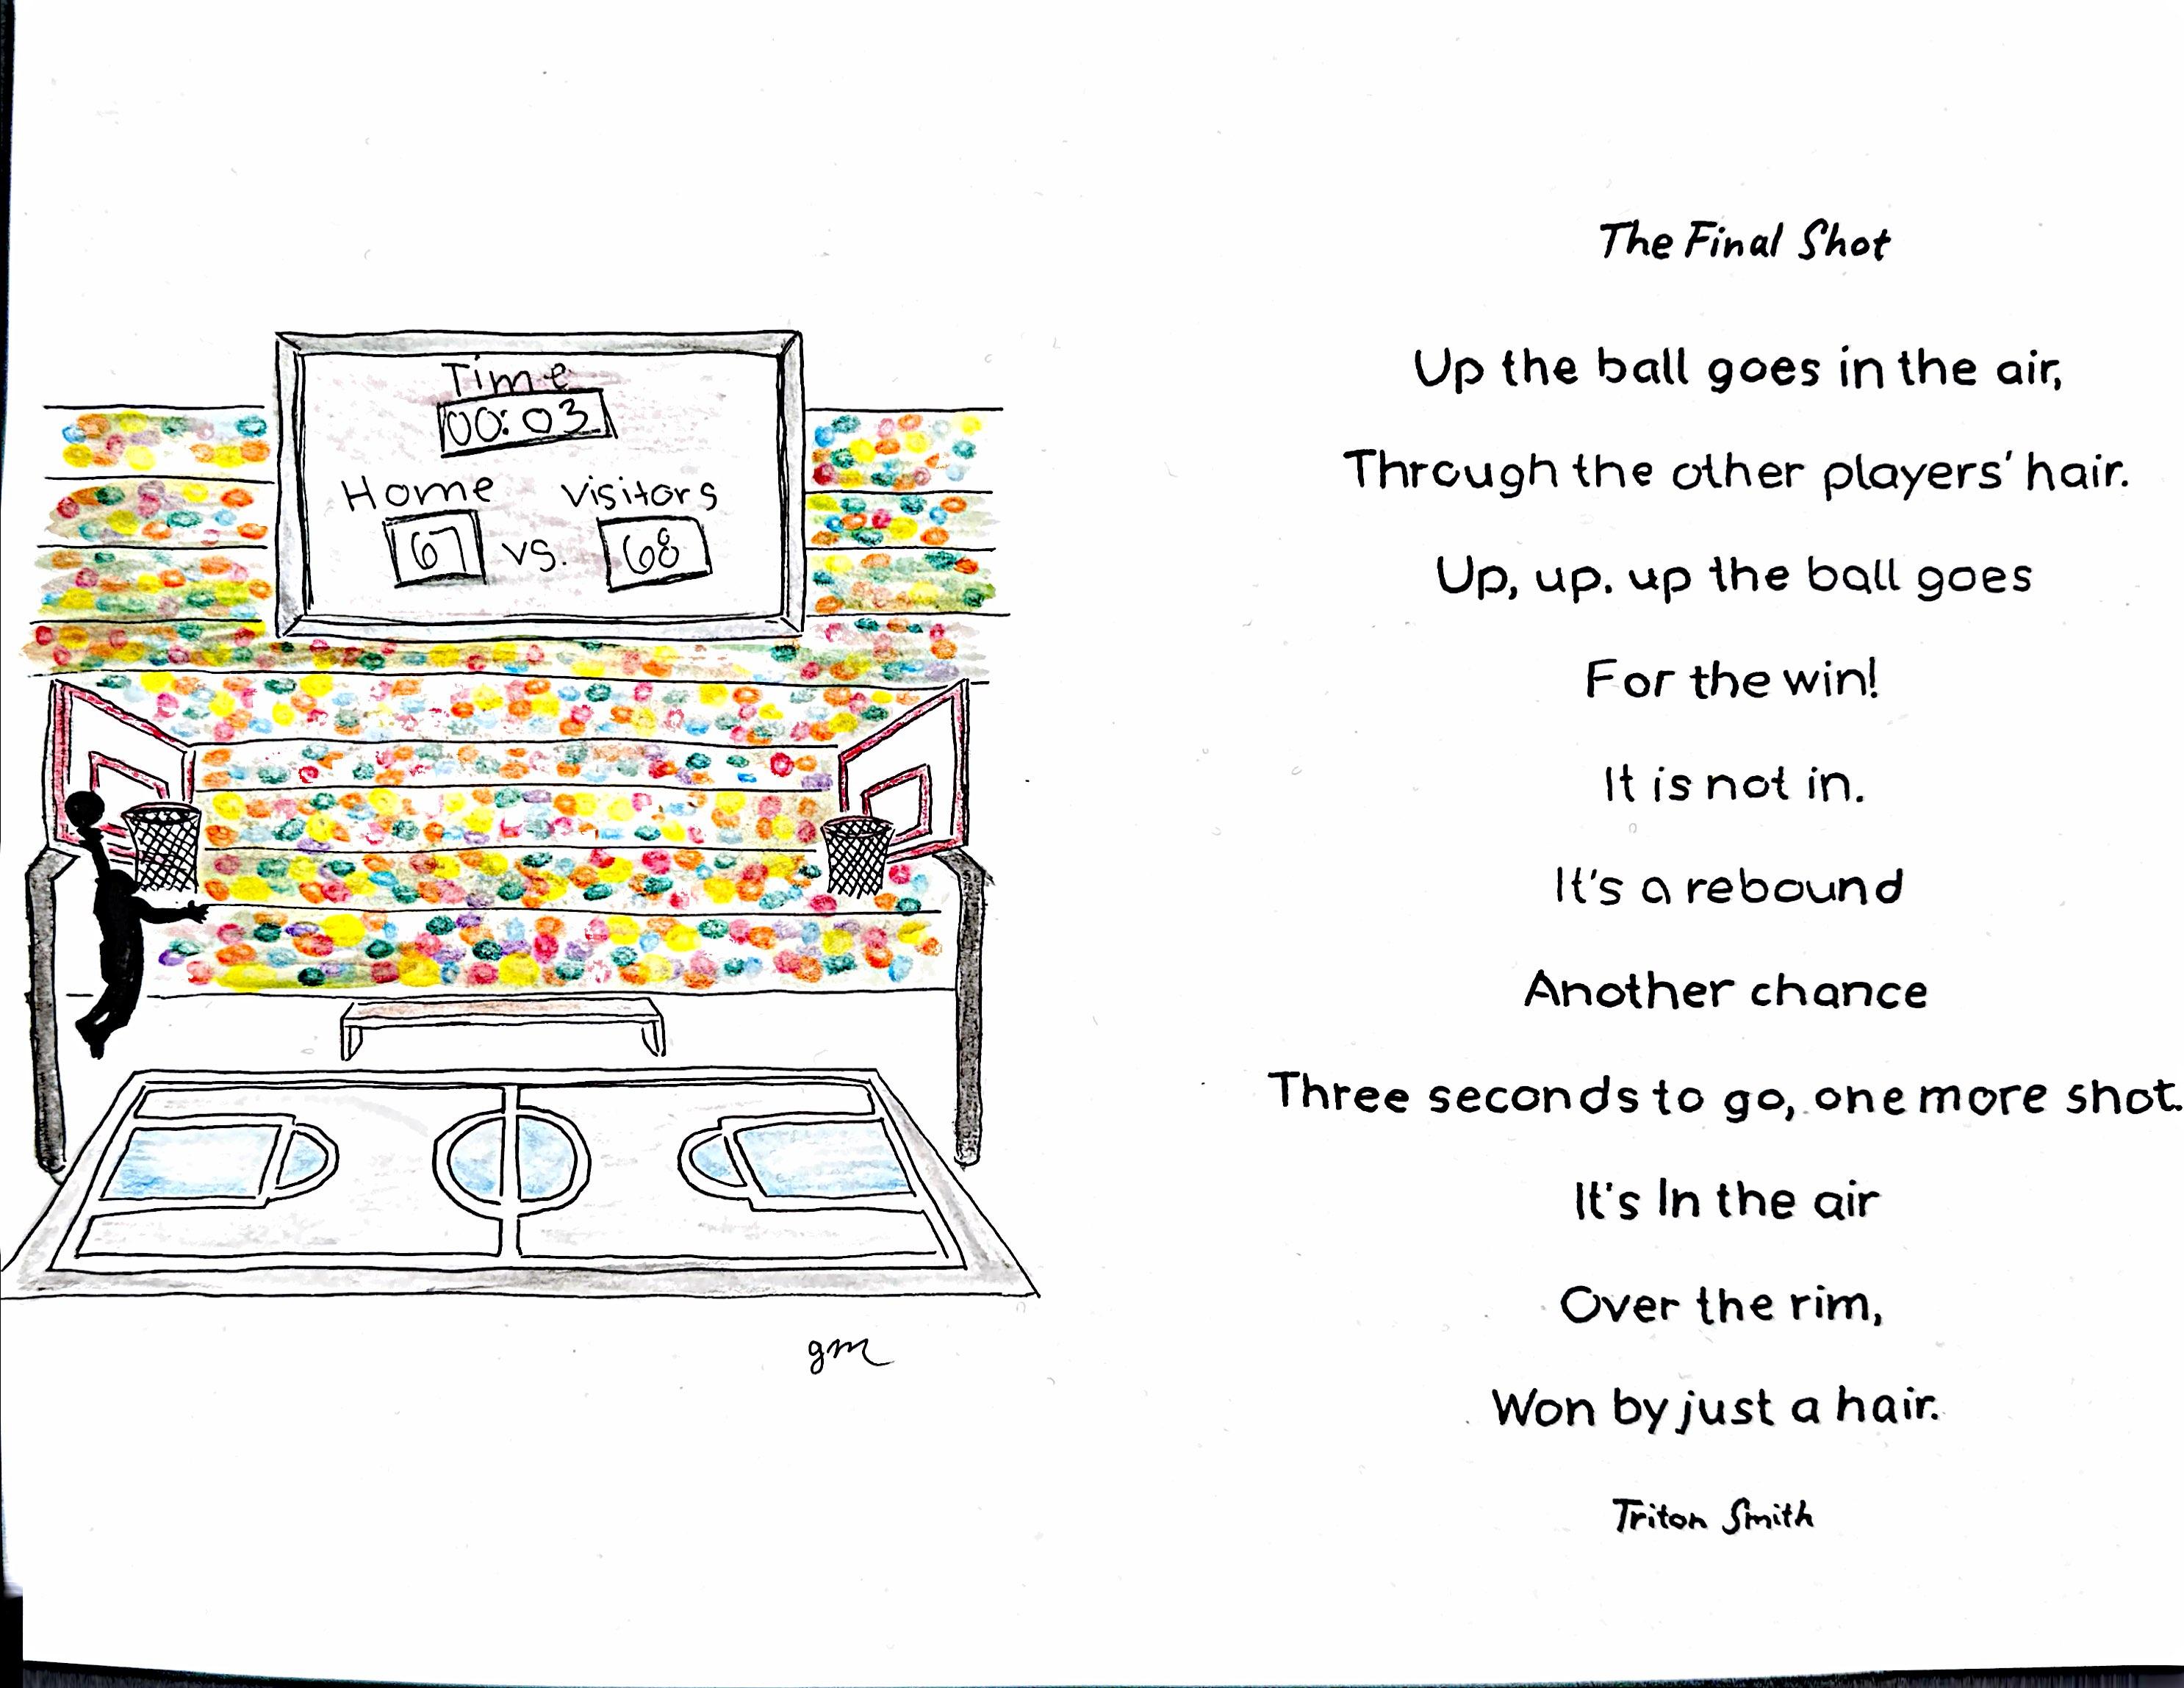 Time
00:03
Home visitors
67 vs. 68
gm
The Final Shot
Up the ball goes in the air,
Through the other players' hair.
Up, up. up the ball goes
For the win!
It is not in.
It's a rebound
Another chance
Three seconds to go, one more shot.
It's In the air
Over the rim,
Won by just a hair.
Triton Smith